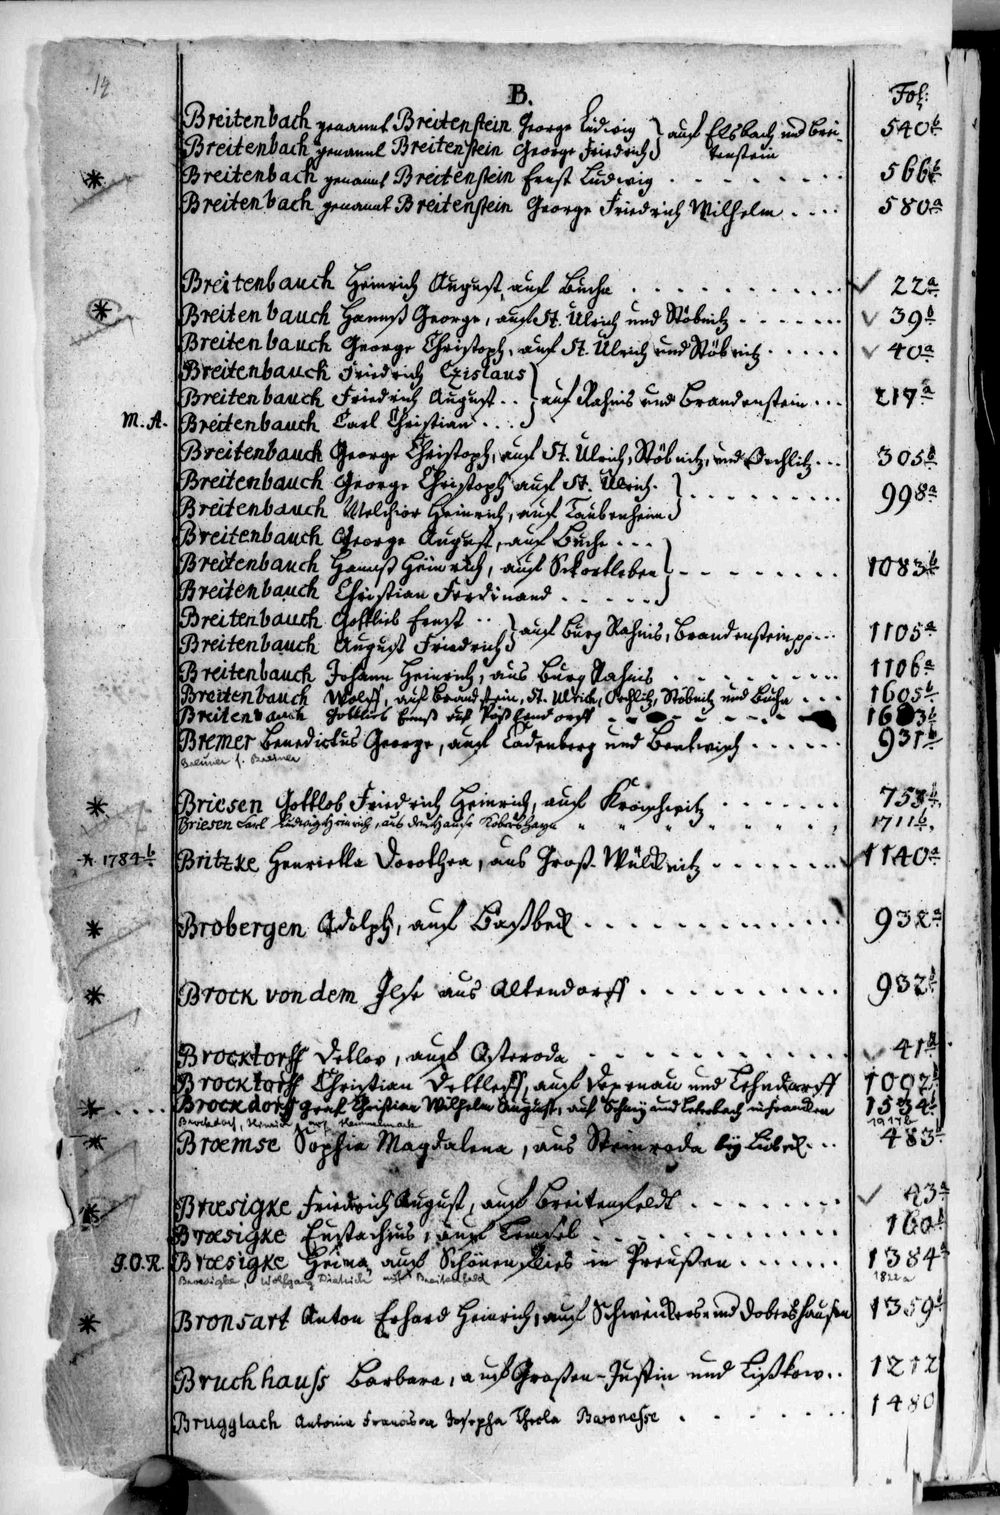 14
B.
Fol:
Breitenbach genannt Breitenstein George Ludwig } auf Elsbach und Brei- 540b
Breitenbach genannt Breitenstein George Friedrich } tenstein
* Breitenbach genannt Breitenstein Ernst Ludwig 566b
Breitenbach genannt Breitenstein George Friedrich Wilhelm 580a
Breitenbauch Heinrich August auf Bucha 22a
* Breitenbauch Hannß George, auf St. Ulrich und Stöbnitz 39b
Breitenbauch George Christoph, auf St. Ulrich und Stöbnitz 40a
Breitenbauch Friedrich Czislaus
Breitenbauch Friedrich August } auf Rahnis und Brandenstein 217a
M. A. Breitenbauch Carl Christian
Breitenbauch George Christoph, auf St. Ulrich, Stöbnitz, und Oechlitz 305b
Breitenbauch George Christoph auf St. Ulrich } 998a
Breitenbauch Melchior Heinrich, auf Taubenheim
Breitenbauch George August, auf Bucha
Breitenbauch Hannß Heinrich, auf Skortleben } 1083b
Breitenbauch Christian Ferdinand
Breitenbauch Gottlieb Ernst } auf Burg Rahnis, Brandenstein pp 1105a
Breitenbauch August Friedrich
Breitenbauch Johann Heinrich, aus Burg Rahnis 1106a
Breitenbauch Wolff, auf Brandstein, St. Ulrich, Oechlitz, Stöbnitz und Bucha 1605b
Breitenbauch Gottlieb Ernst auf
Bremer Benedictus George, auf Cadenberg und Bentwisch 931b
* Briesen Gottlob Friedrich Heinrich, auf 753b
Briesen Carl Ludwig Heinrich, aus dem Hause 1711b
1784b Britzke Henrietta Dorothea, aus Groß-Wülknitz 1140a
* Brobergen Adolph, auf Baßbeck 932a
* Brock von dem Ilse aus Altendorff 932b
Brocktorff Detlov, auf Osteroda 41a
Brocktorff Christian Dettleff, auf und Lehndorff 1092b
* Brockdorff Graf Christian Wilhelm August, auf Schney und in Francken 1534b
1917b
* Brœmse Sophia Magdalena, aus Steinroda by Lübeck 483b
* Brœsigke Friedrich August, auf Breitenfeldt 43a
Brœsigke Eustachius, auf 160b
J. O. R. Brœsigke Heino auf Schönenflies in Preußen 1384a
Broesigke Wolfgang Dietrich auf Breitenfeld 1822a
* Bronsart Anton Erhard Heinrich, auf Schweickers- und Dobershausen 1359b
Bruchhauss Barbara, auf Großen-Justin und Lißkow 1212
Brugglach Antonia Francisca Josepha Thecla Baronesse 1480